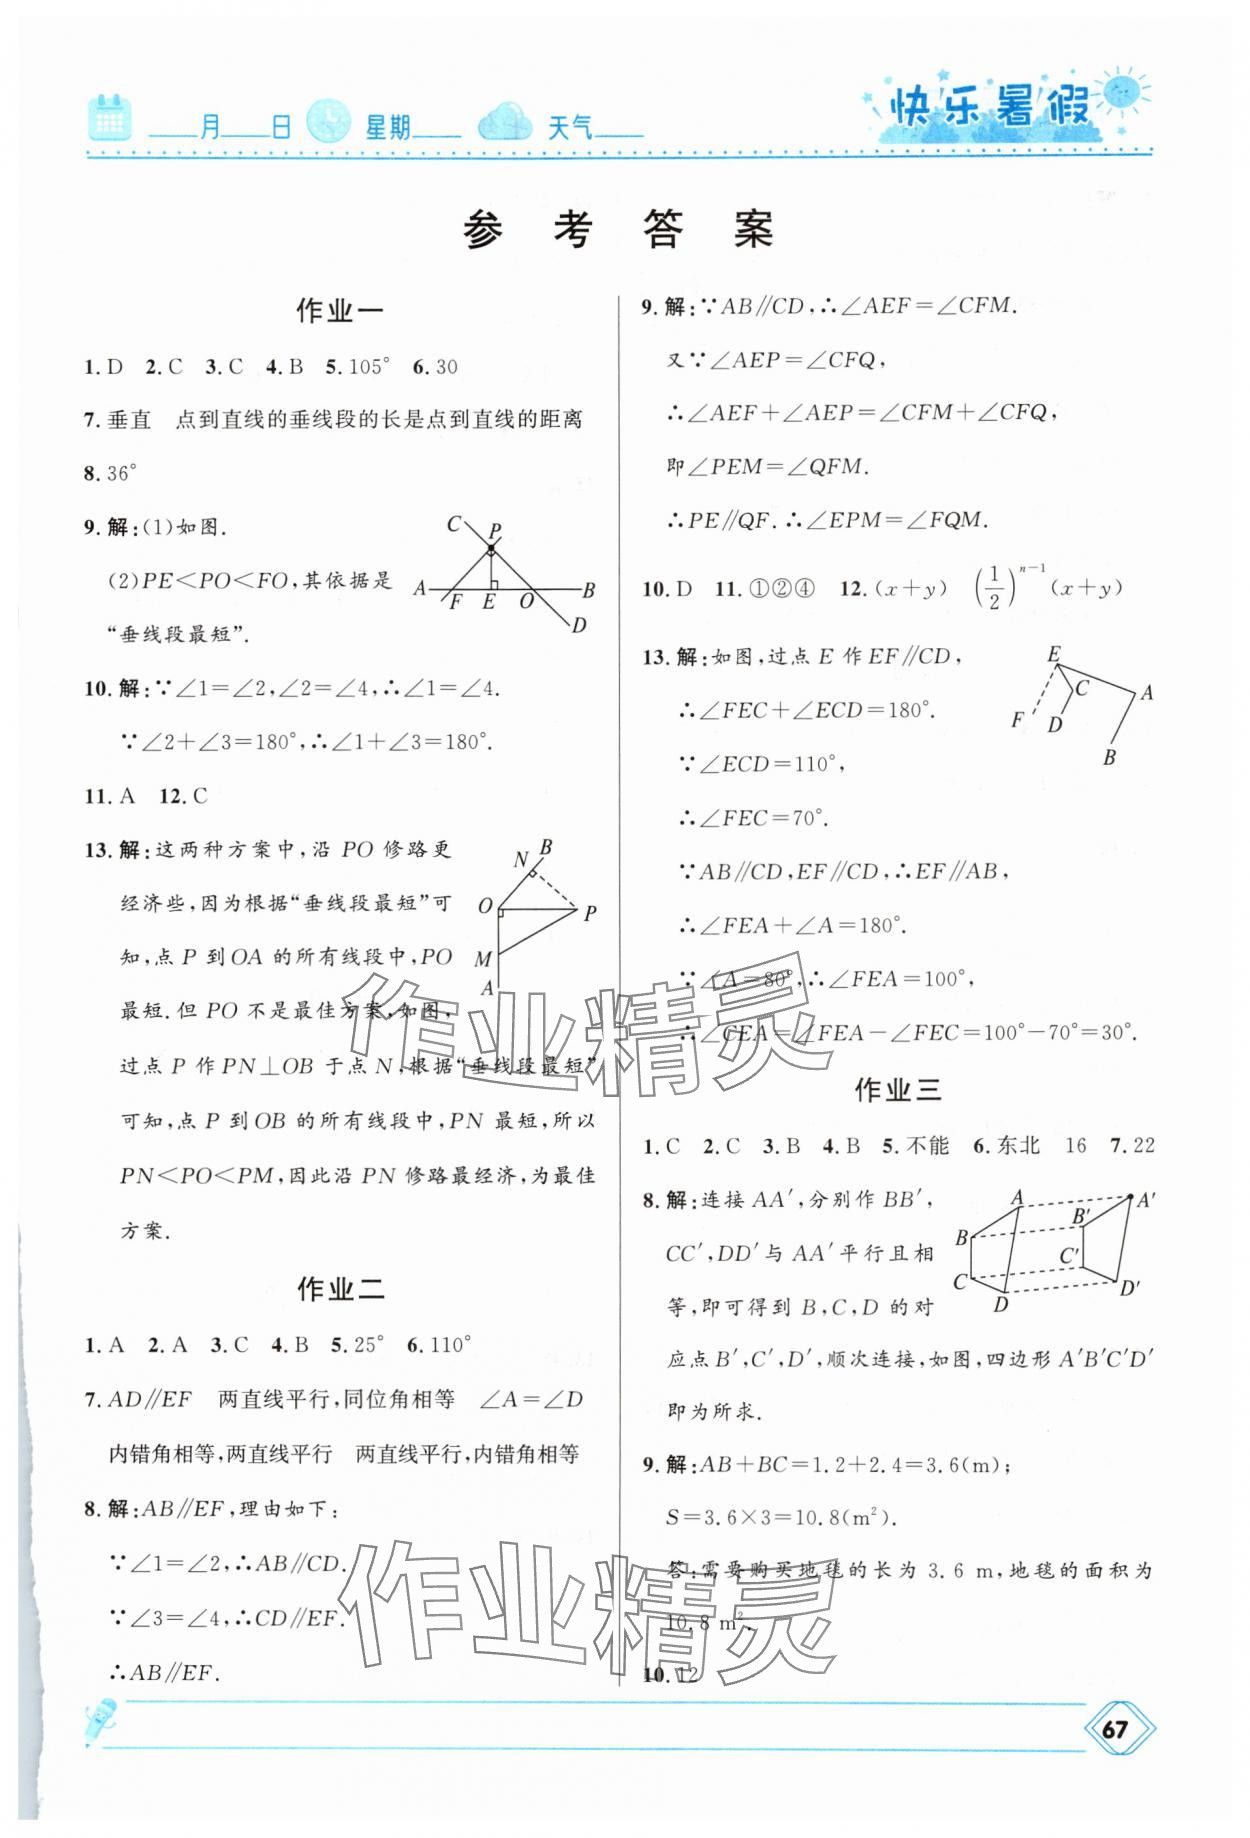 ____月____日 星期____ 天气____
快乐暑假
参 考 答 案
作业一
1.D 2.C 3.C 4.B 5.105° 6.30
7.垂直 点到直线的垂线段的长是点到直线的距离
8.36°
9.解:(1)如图.
(2)PE<PO<FO,其依据是
“垂线段最短”.
C P A F E O B D
10.解:∵∠1=∠2,∠2=∠4,∴∠1=∠4.
∵∠2+∠3=180°,∴∠1+∠3=180°.
11.A 12.C
13.解:这两种方案中,沿 PO 修路更
经济些,因为根据“垂线段最短”可
知,点 P 到 OA 的所有线段中,PO
最短.但 PO 不是最佳方案,如图,
过点 P 作 PN⊥OB 于点 N,根据“垂线段最短”
可知,点 P 到 OB 的所有线段中,PN 最短,所以
PN<PO<PM,因此沿 PN 修路最经济,为最佳
方案.
B N O P M A
作业二
1.A 2.A 3.C 4.B 5.25° 6.110°
7.AD∥EF 两直线平行,同位角相等 ∠A=∠D
内错角相等,两直线平行 两直线平行,内错角相等
8.解:AB∥EF,理由如下:
∵∠1=∠2,∴AB∥CD.
∵∠3=∠4,∴CD∥EF.
∴AB∥EF.
9.解:∵AB∥CD,∴∠AEF=∠CFM.
又∵∠AEP=∠CFQ,
∴∠AEF+∠AEP=∠CFM+∠CFQ,
即∠PEM=∠QFM.
∴PE∥QF.∴∠EPM=∠FQM.
10.D 11.①②④ 12.(x+y) (1/2)^{n-1}(x+y)
13.解:如图,过点 E 作 EF∥CD,
∴∠FEC+∠ECD=180°.
∵∠ECD=110°,
∴∠FEC=70°.
∵AB∥CD,EF∥CD,∴EF∥AB,
∴∠FEA+∠A=180°.
∵∠A=80°,∴∠FEA=100°,
∴∠CEA=∠FEA-∠FEC=100°-70°=30°.
E C A F D B
作业三
1.C 2.C 3.B 4.B 5.不能 6.东北 16 7.22
8.解:连接 AA′,分别作 BB′,
CC′,DD′与 AA′平行且相
等,即可得到 B,C,D 的对
应点 B′,C′,D′,顺次连接,如图,四边形 A′B′C′D′
即为所求.
A A′ B B′ C C′ D D′
9.解:AB+BC=1.2+2.4=3.6(m);
S=3.6×3=10.8(m²).
答:需要购买地毯的长为 3.6 m,地毯的面积为
10.8 m².
10.12
作业精灵
作业精灵
67